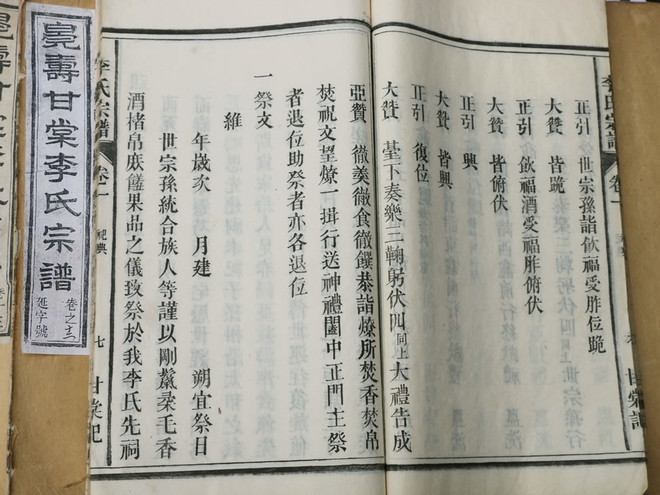 李氏宗譜 卷一
正引 世宗孫詣飲福受胙位跪
大贊 皆跪
正引 飲福酒受福胙俯伏
大贊 皆俯伏
正引 興
大贊 皆興
正引 復位
大贊 臺下奏樂三鞠躬伏四同上大禮告成
亞贊 徹羹徹食徹饌恭詣燎所焚香焚帛
焚祝文望燎一揖行送神禮闔中正門主祭
者退位助祭者亦各退位
一祭文
維
年歲次 月建 朔宜祭日
世宗孫統合族人等謹以剛鬣柔毛香
酒楮帛庶饈果品之儀致祭於我李氏先祠
李氏宗譜 卷一 祀典 七 甘棠記
壽甘棠李氏宗譜
延字號